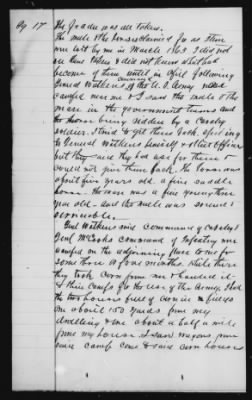 Qy 17
The Fodder was all taken.
The mule & the horses claimed for as stolen
were left by me in March 1865 I did not
see them taken & did not know what had
become of them until in April following
General Watkins of the U. S. Army
camped near me & I saw the mule & the
mare in the government teams and
the horse being ridden by a Cavalry
soldier. I tried to get them back applying
to General Watkins himself & other officers
but they said they had use for them &
could not give them back. The horse was
about five years old a fine saddle
horse. The mare was a fine young three
year old and the mule was sound &
serviceable.
Genl Watkins said command of cavalry &
Genl McCooks command of Infantry were
camped on the adjoining place to me for
some three or four months. While there
they took corn from me & hauled it
to their camps for the use of the Army. I had
the two houses full of corn in my fields
one about 150 yards from my
dwelling & one about a half a mile
from my house. I saw wagons from
said camp come to said corn houses